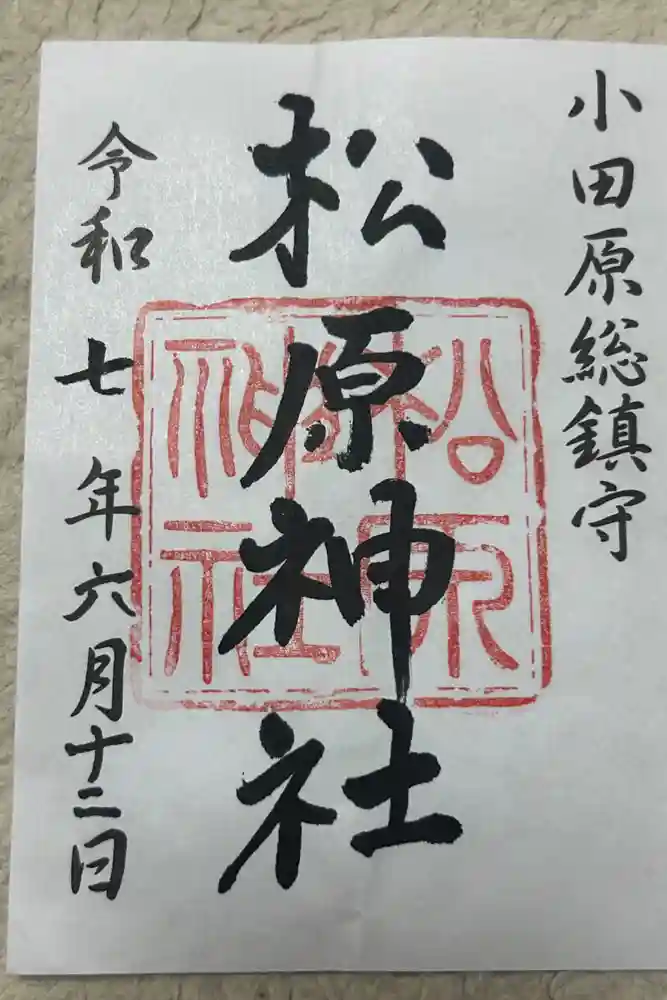 小田原総鎮守
松原神社
松原
神社
令和七年六月十二日